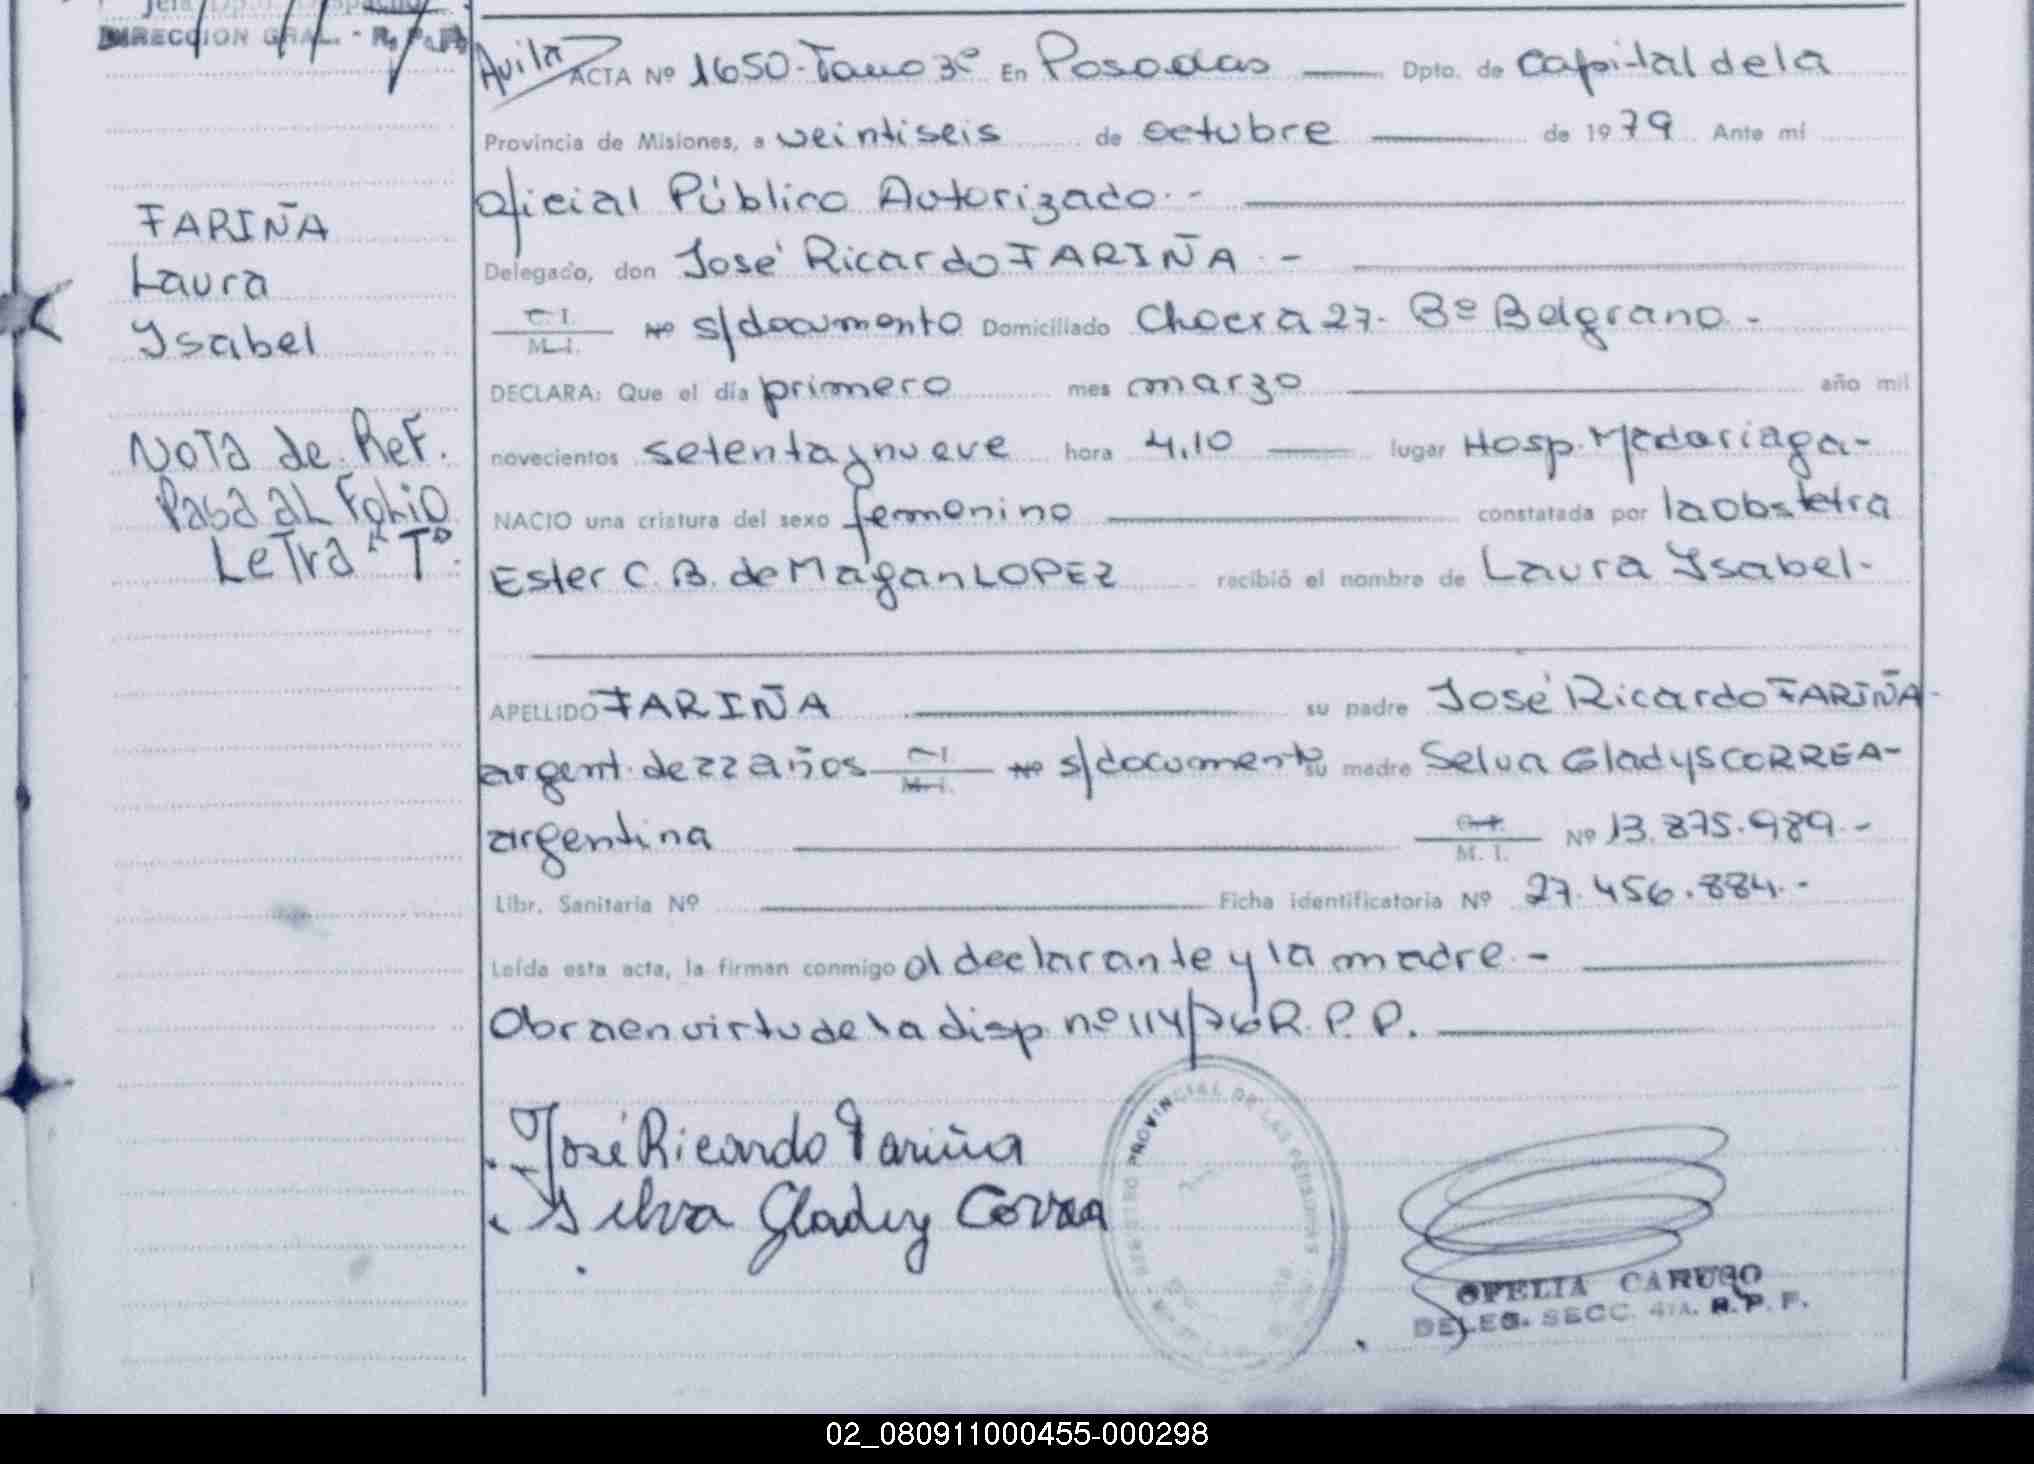 Jefa Dpto. Despacho
DIRECCION GRAL. - R. P. P.
FARIÑA
Laura
Ysabel
Nota de Ref.
Pasa al Folio
Letra "T".
Avila ACTA Nº 1650-Tomo 3º En Posadas Dpto. de Capital de la
Provincia de Misiones, a veintiseis de octubre de 1979 Ante mí
Oficial Público Autorizado.-
Delegado, don José Ricardo FARIÑA.-
C. I.
M. I. Nº s/documento Domiciliado Chacra 27- Bº Belgrano.-
DECLARA: Que el día primero mes marzo año mil
novecientos setenta y nueve hora 4,10 lugar Hosp. Madariaga-
NACIO una criatura del sexo femenino constatada por la obstetra
Ester C. B. de Magan LOPEZ recibió el nombre de Laura Ysabel.-
APELLIDO FARIÑA su padre José Ricardo FARIÑA-
argent. de 22 años C. I. M. I. Nº s/documento su madre Selva Gladys CORREA-
argentina C. I. M. I. Nº 13.875.989.-
Libr. Sanitaria Nº Ficha identificatoria Nº 27.456.884.-
Leída esta acta, la firman conmigo el declarante y la madre.-
Obra en virtu de la disp. nº 114/76 R. P. P.
José Ricardo Fariña
Selva Gladys Correa
REGISTRO PROVINCIAL DE LAS PERSONAS
OFELIA CARUSO
DELEG. SECC. 4TA. R. P. P.
02_080911000455-000298